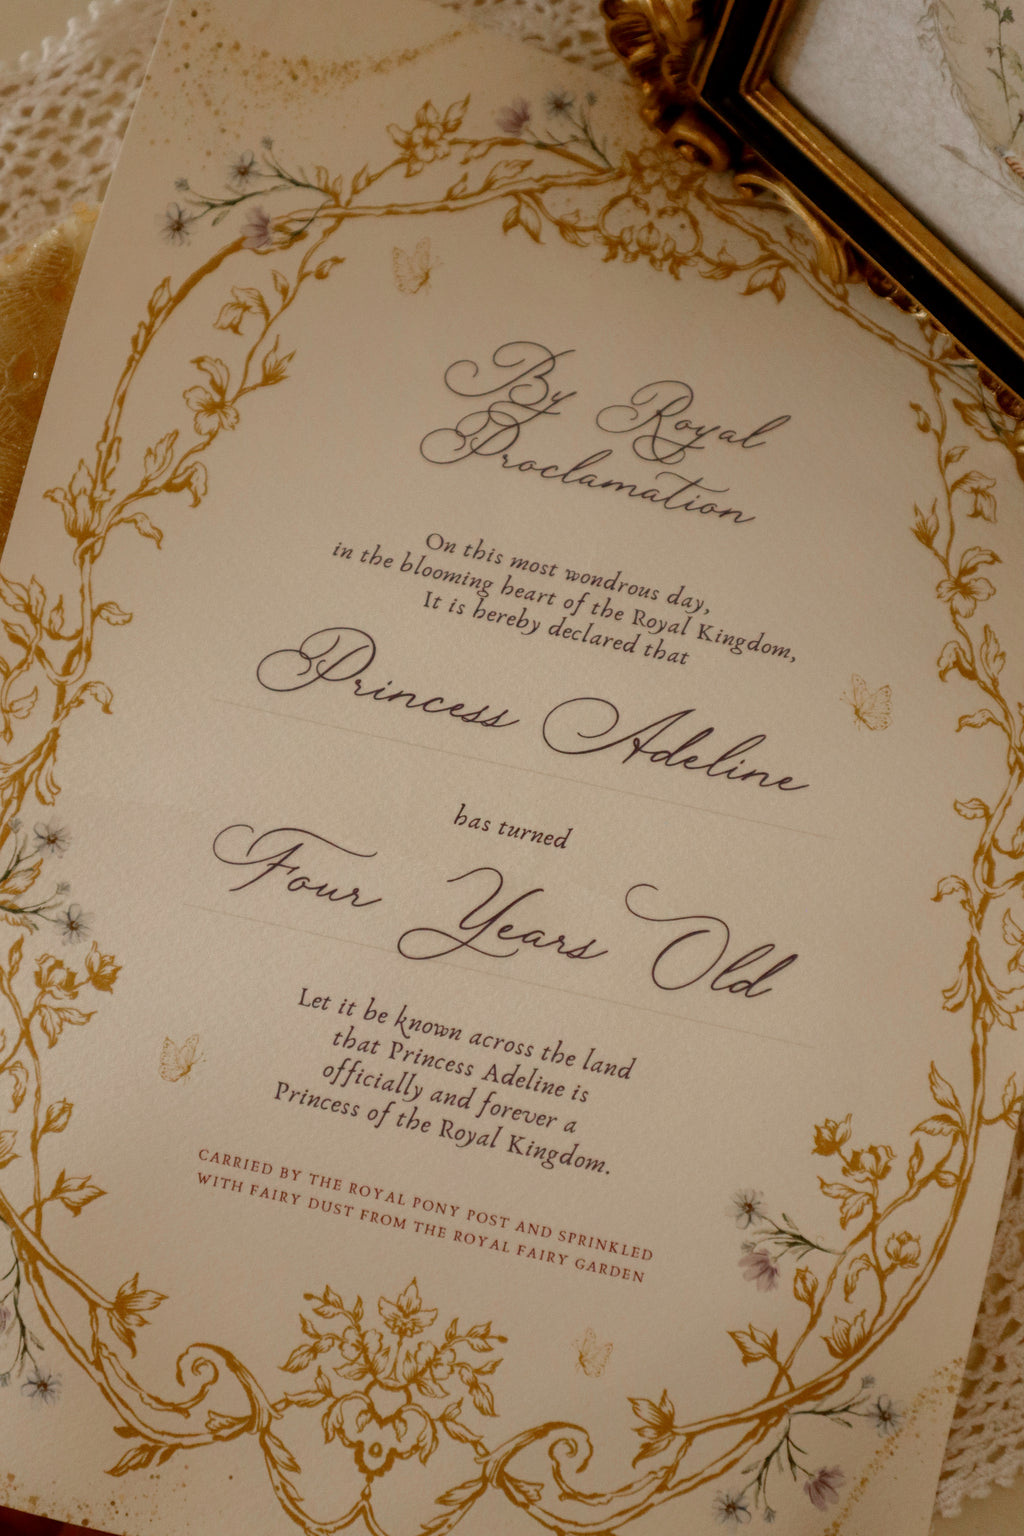 By Royal
Proclamation
On this most wondrous day,
in the blooming heart of the Royal Kingdom,
It is hereby declared that
Princess Adeline
has turned
Four Years Old
Let it be known across the land
that Princess Adeline is
officially and forever a
Princess of the Royal Kingdom.
CARRIED BY THE ROYAL PONY POST AND SPRINKLED
WITH FAIRY DUST FROM THE ROYAL FAIRY GARDEN